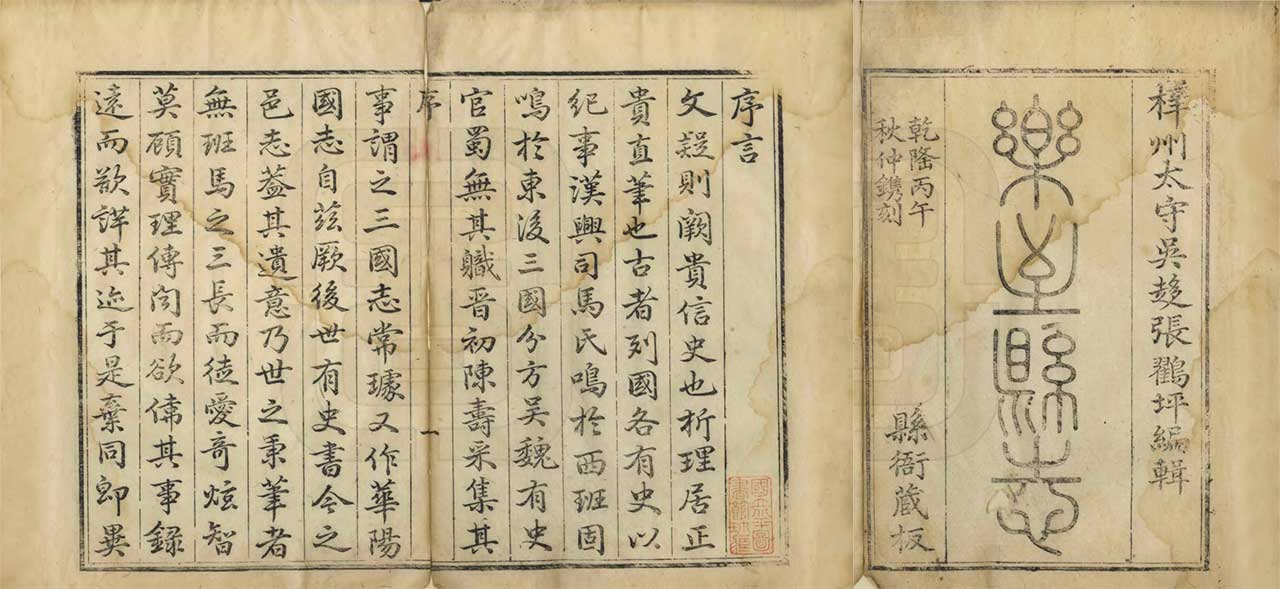 梓州太守吳趍張鶴坪編輯
樂至縣志
乾隆丙午
秋仲鐫刻
縣衙藏板
序言
文疑則闕貴信史也析理居正
貴直筆也古者列國各有史以
紀事漢興司馬氏鳴於西班固
鳴於東後三國分方吳魏有史
官蜀無其職晉初陳壽采集其
序 一
事謂之三國志常璩又作華陽
國志自茲厥後世有史書今之
邑志葢其遺意乃世之秉筆者
無班馬之三長而徒愛奇炫智
莫顧實理傳聞而欲偉其事錄
遠而欲詳其迹于是棄同即異